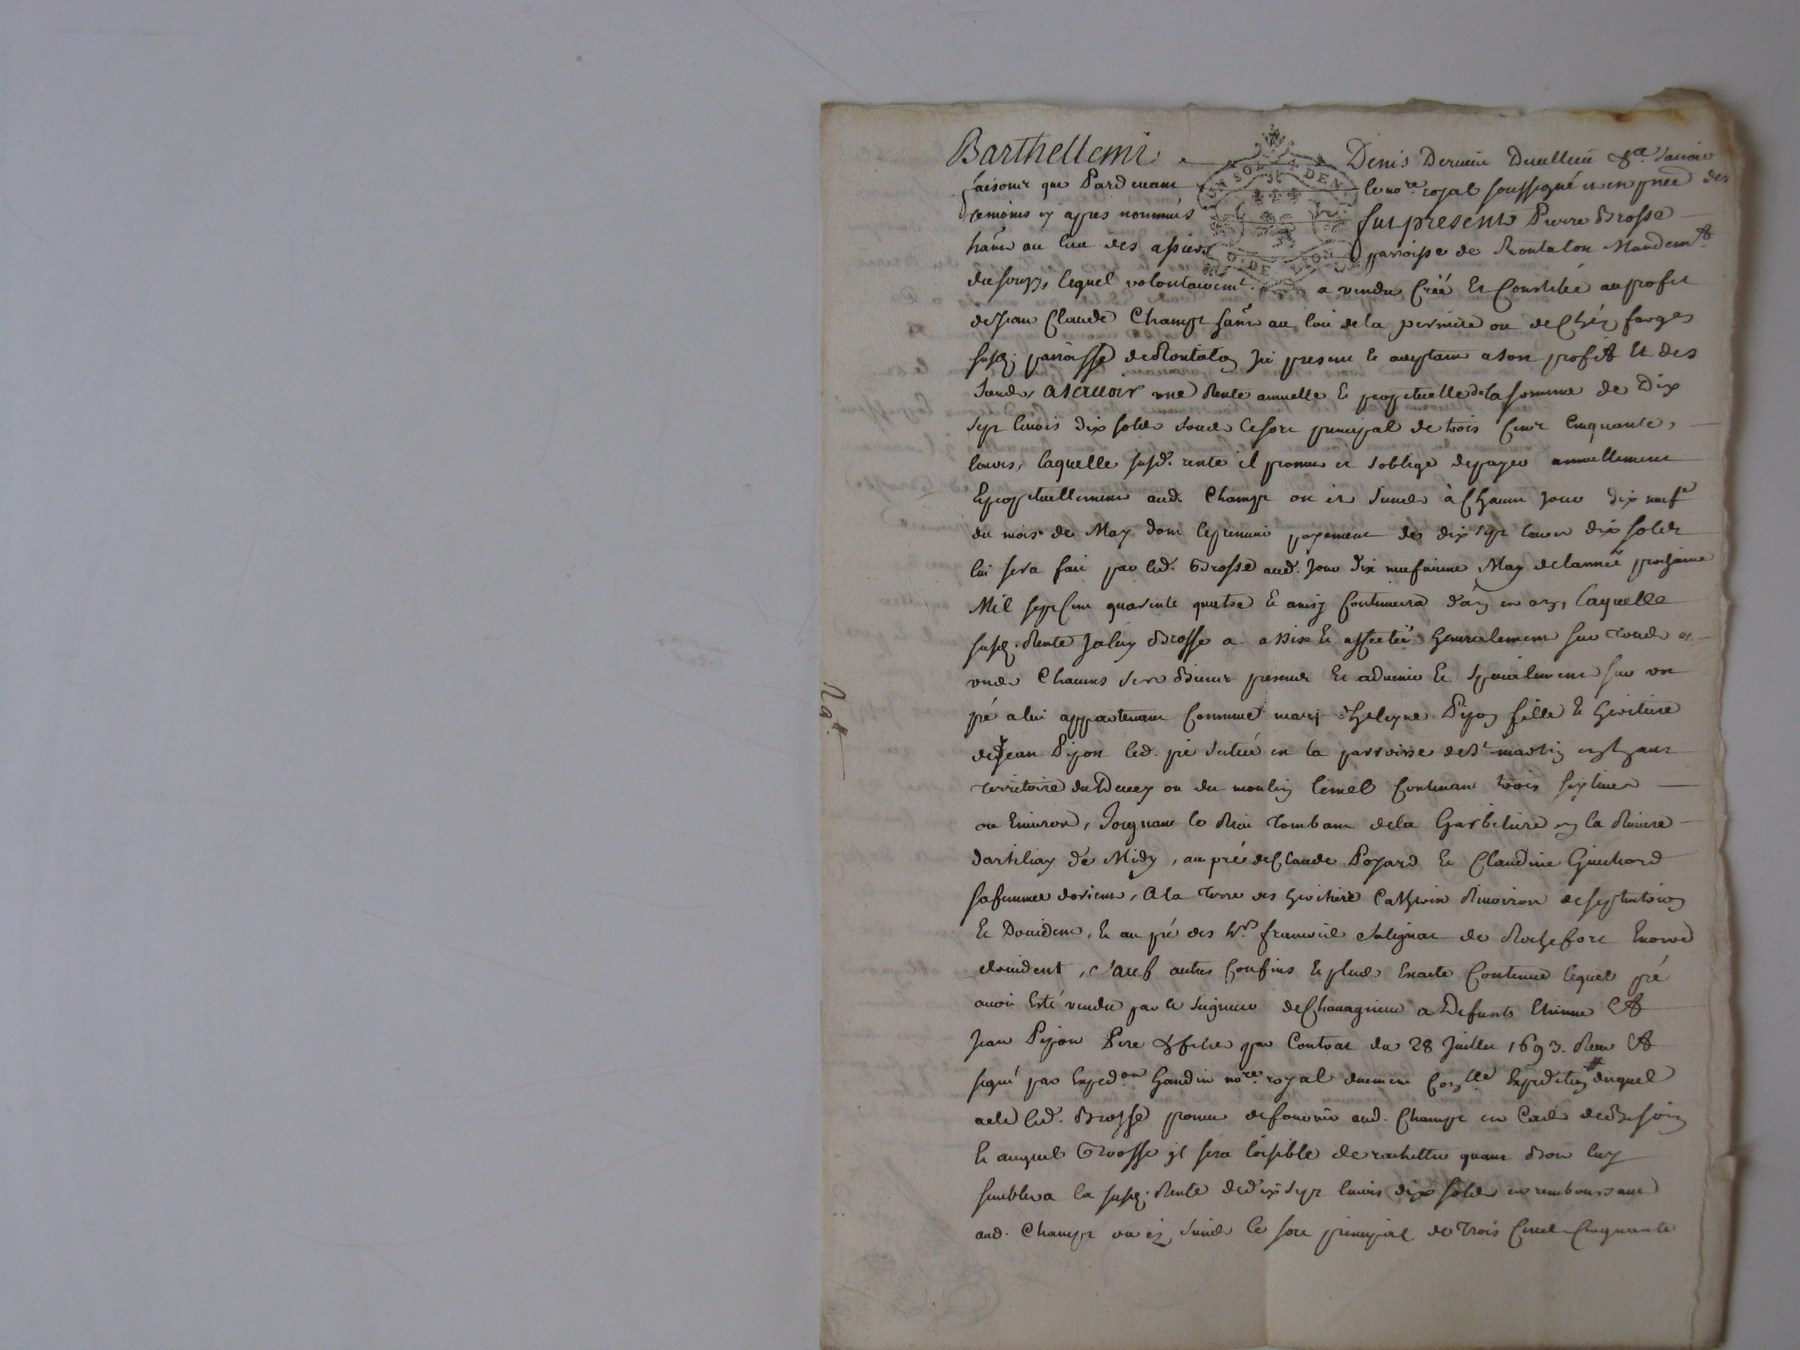 Barthellemi Denis Dervieu Duvillieu &ca. savoir
faisons que Pardevant le nore. royal soussigné et en pnce des
temoins cy apres nommés fut present Pierre Brosse
hant au lieu des assiers parroisse de Rontalon Mandemt
lequel volontairemt. a vendu Créé et Constitué au profit
de Jean Claude Champt hant au lieu de la perriere ou de Chés farges
susd. parroisse de Rontalon icy present et acceptant a son profit et des
siens ascavoir une Rente annuelle et perpetuelle de la somme de Dix
sept livres dix sols sous le sort principal de trois Cent Cinquante
livres, laquelle susd. rente il promet et s'oblige de payer annuellement
et perpetuellement aud. Champt ou es siens à Chacun jour dix neufe
du mois de May dont le premier payement des dix sept livres dix sols
lui sera fait par led. Brosse aud. jour dix neufvieme May de l'année prochaine
Mil sept Cent quarente quatre et ainsy Continuera d'an en an, laquelle
susd. Rente iceluy Brosse a assise et affectée generalement sur tous et
uns Chacuns ses Biens presents et advenir et specialement sur un
pré a lui appartenant Comme mary Pijon fille et heritiere
de Jean Pijon led. pré situé en la parroisse de St martin en haut
territoire du ou du moulin Contenant trois
ou Environ, Joignant le tombant de la en la Riviere
de Midy, au pré de Claude Poyard et Claudine Guichard
sa femme d'orient, A la terre des heritiers de septentrion
et D'occident, et au pré des hrs. de Rochefort Encore
d'occident, sauf autres Confins et plus Exacte Contenue lequel pré
avoit Esté vendu par le Seigneur de Chavagnieu a Defunts Etienne Et
Jean Pijon Pere & fils par Contrat du 28 Juillet 1693. Receu Et
signé par Gaudin nore. royal Expedition duquel
acte led. Brosse promet de fournir aud. Champt en Cas de Besoin
et auquel Brosse il sera loisible de rachetter quant Bon luy
semblera la susd. Rente de dix sept livres dix sols en remboursant
aud. Champt ou es siens le sort principal de trois Cent Cinquante